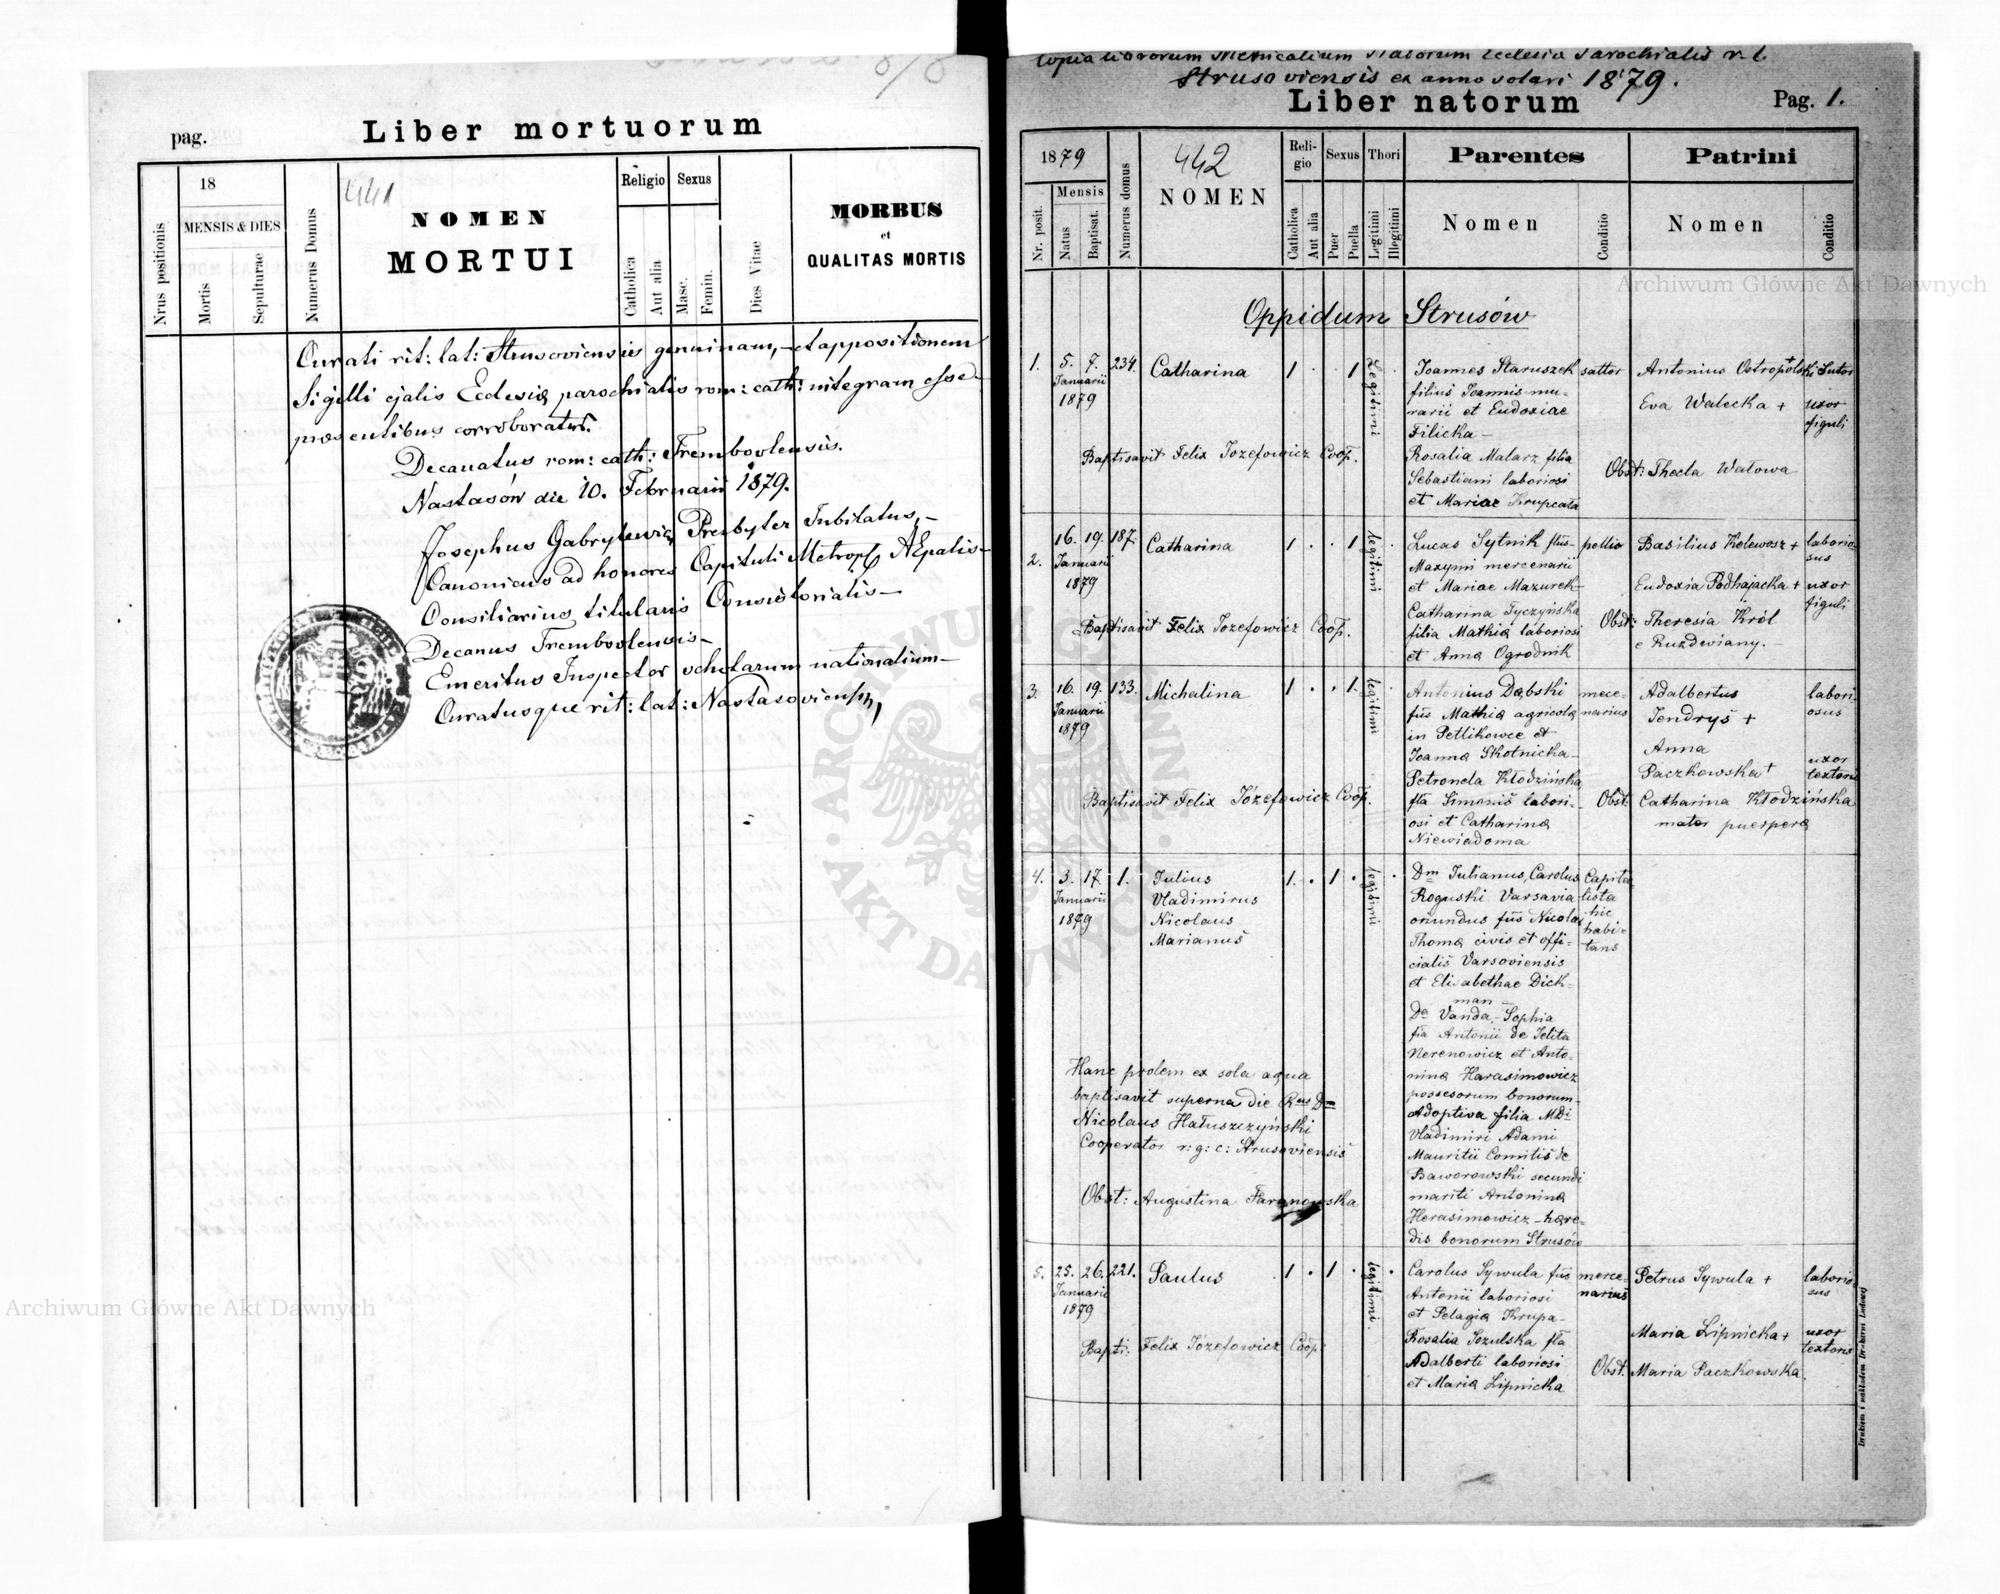 pag.
Liber mortuorum
441
Nrus positionis
18
MENSIS & DIES
Mortis
Sepulturae
Numerus Domus
NOMEN
MORTUI
Religio
Catholica
Aut alia
Sexus
Masc.
Femin.
Dies Vitae
MORBUS
et
QUALITAS MORTIS
Curati rit: lat: Strusoviensis genuinam, – et appositionem
Sigilli ejalis Ecclesiæ parochialis rom: cath: integram esse –
præsentibus corroboratur.
Decanatus rom: cath: Trembovlensis.
Nastasów die 10. Februarii 1879.
Josephus Gabrylewicz Presbyter Jubilatus, –
Canonicus ad honores Capituli Metropl AEpalis –
Consiliarius titularis Consistorialis –
Decanus Trembovlensis –
Emeritus Inspector scholarum nationalium –
Curatusque rit: lat: Nastasoviensis,
Copia librorum Metricalium Natorum Ecclesiæ Parochialis r. l.
Strusoviensis ex anno solari 1879.
Liber natorum
Pag. 1.
1879
Nr. posit.
Mensis
Natus
Baptisat.
Numerus domus
442
NOMEN
Reli-
gio
Catholica
Aut alia
Sexus
Puer
Puella
Thori
Legitimi
Illegitimi
Parentes
Nomen
Conditio
Patrini
Nomen
Conditio
Oppidum Strusów
1. 5. 7. 234. Catharina 1 . . 1 Legitimi . Joannes Staruszek sattor Antonius Ostropolski + Sutor
Januarii filius Joannis mu-
1879 rarii et Eudoxiae Eva Walecka + uxor
Filicka – figuli
Baptisavit Felix Jozefowicz Coop. Rosalia Malarz filia Obst: Thecla Watowa
Sebastiani laboriosi
et Mariae Krupcata
2. 16. 19. 187. Catharina 1 . . 1 legitimi . Lucas Sytnik flus pellio Basilius Kolewasz + laborio-
Januarii Maxymi mercenarii sus
1879 et Mariae Mazurek – Eudoxia Podhajacka + uxor
Catharina Tyczyńska figuli
Baptisavit Felix Jozefowicz Coop. filia Mathiæ laboriosi Obst: Theresia Król
et Annæ Ogrodnik e Ruzdwiany. –
3. 16. 19. 133. Michalina 1 . . 1. legitimi Antonius Dąbski merce- Adalbertus labori-
Januarii fius Mathiæ agricolæ narius Jendryś + osus
1879 in Petlikowce et
Joannæ Skotnicka – Anna uxor
Petronela Kłodzińska Paczkowska + textoris
Baptisavit Felix Józefowicz Coop. fla Simonis labori- Obst: Catharina Kłodzińska
osi et Catharinæ mater puerperæ
Niewiadoma
4. 3. 17. 1. Julius 1. . 1 . legitimi . Dm Julianus, Carolus Capita-
Januarii Vladimirus Roguski Varsavia lista
1879 Nicolaus oriundus fius Nicolai hic
Marianus Thomæ civis et offi- habi-
cialis Varsoviensis tans
et Elisabethae Dick-
man –
Da Vanda, Sophia
fia Antonii de Jelita
Nerenowicz et Anto-
Hanc prolem ex sola aqua ninæ Harasimowicz
baptisavit superna die Rus Dm possesorum bonorum –
Nicolaus Hatuszczyński Adoptiva filia MDi
Cooperator r: g: c: Strusoviensis Vladimiri Adami
Mauritii Comitis de
Baworowski secundi
Obst: Augustina Taranowska mariti Antoninæ
Herasimowicz – hære-
dis bonorum Strusów
5. 25. 26. 221. Paulus 1 . 1 . legitimi. . Carolus Sywula fius merce- Petrus Sywula + laborio-
Januarii Antonii laboriosi narius sus
1879 et Pelagiæ Krupa –
Rosalia Jozulska fla Maria Lipnicka + uxor
Bapti: Felix Józefowicz Coop: Adalberti laboriosi textoris
et Mariæ Lipnicka Obst. Maria Paczkowska.
Drukiem i nakładem Drukarni Ludowej
Archiwum Główne Akt Dawnych
Archiwum Główne Akt Dawnych
ARCHIWUM GŁÓWNE · AKT DAWNYCH ·